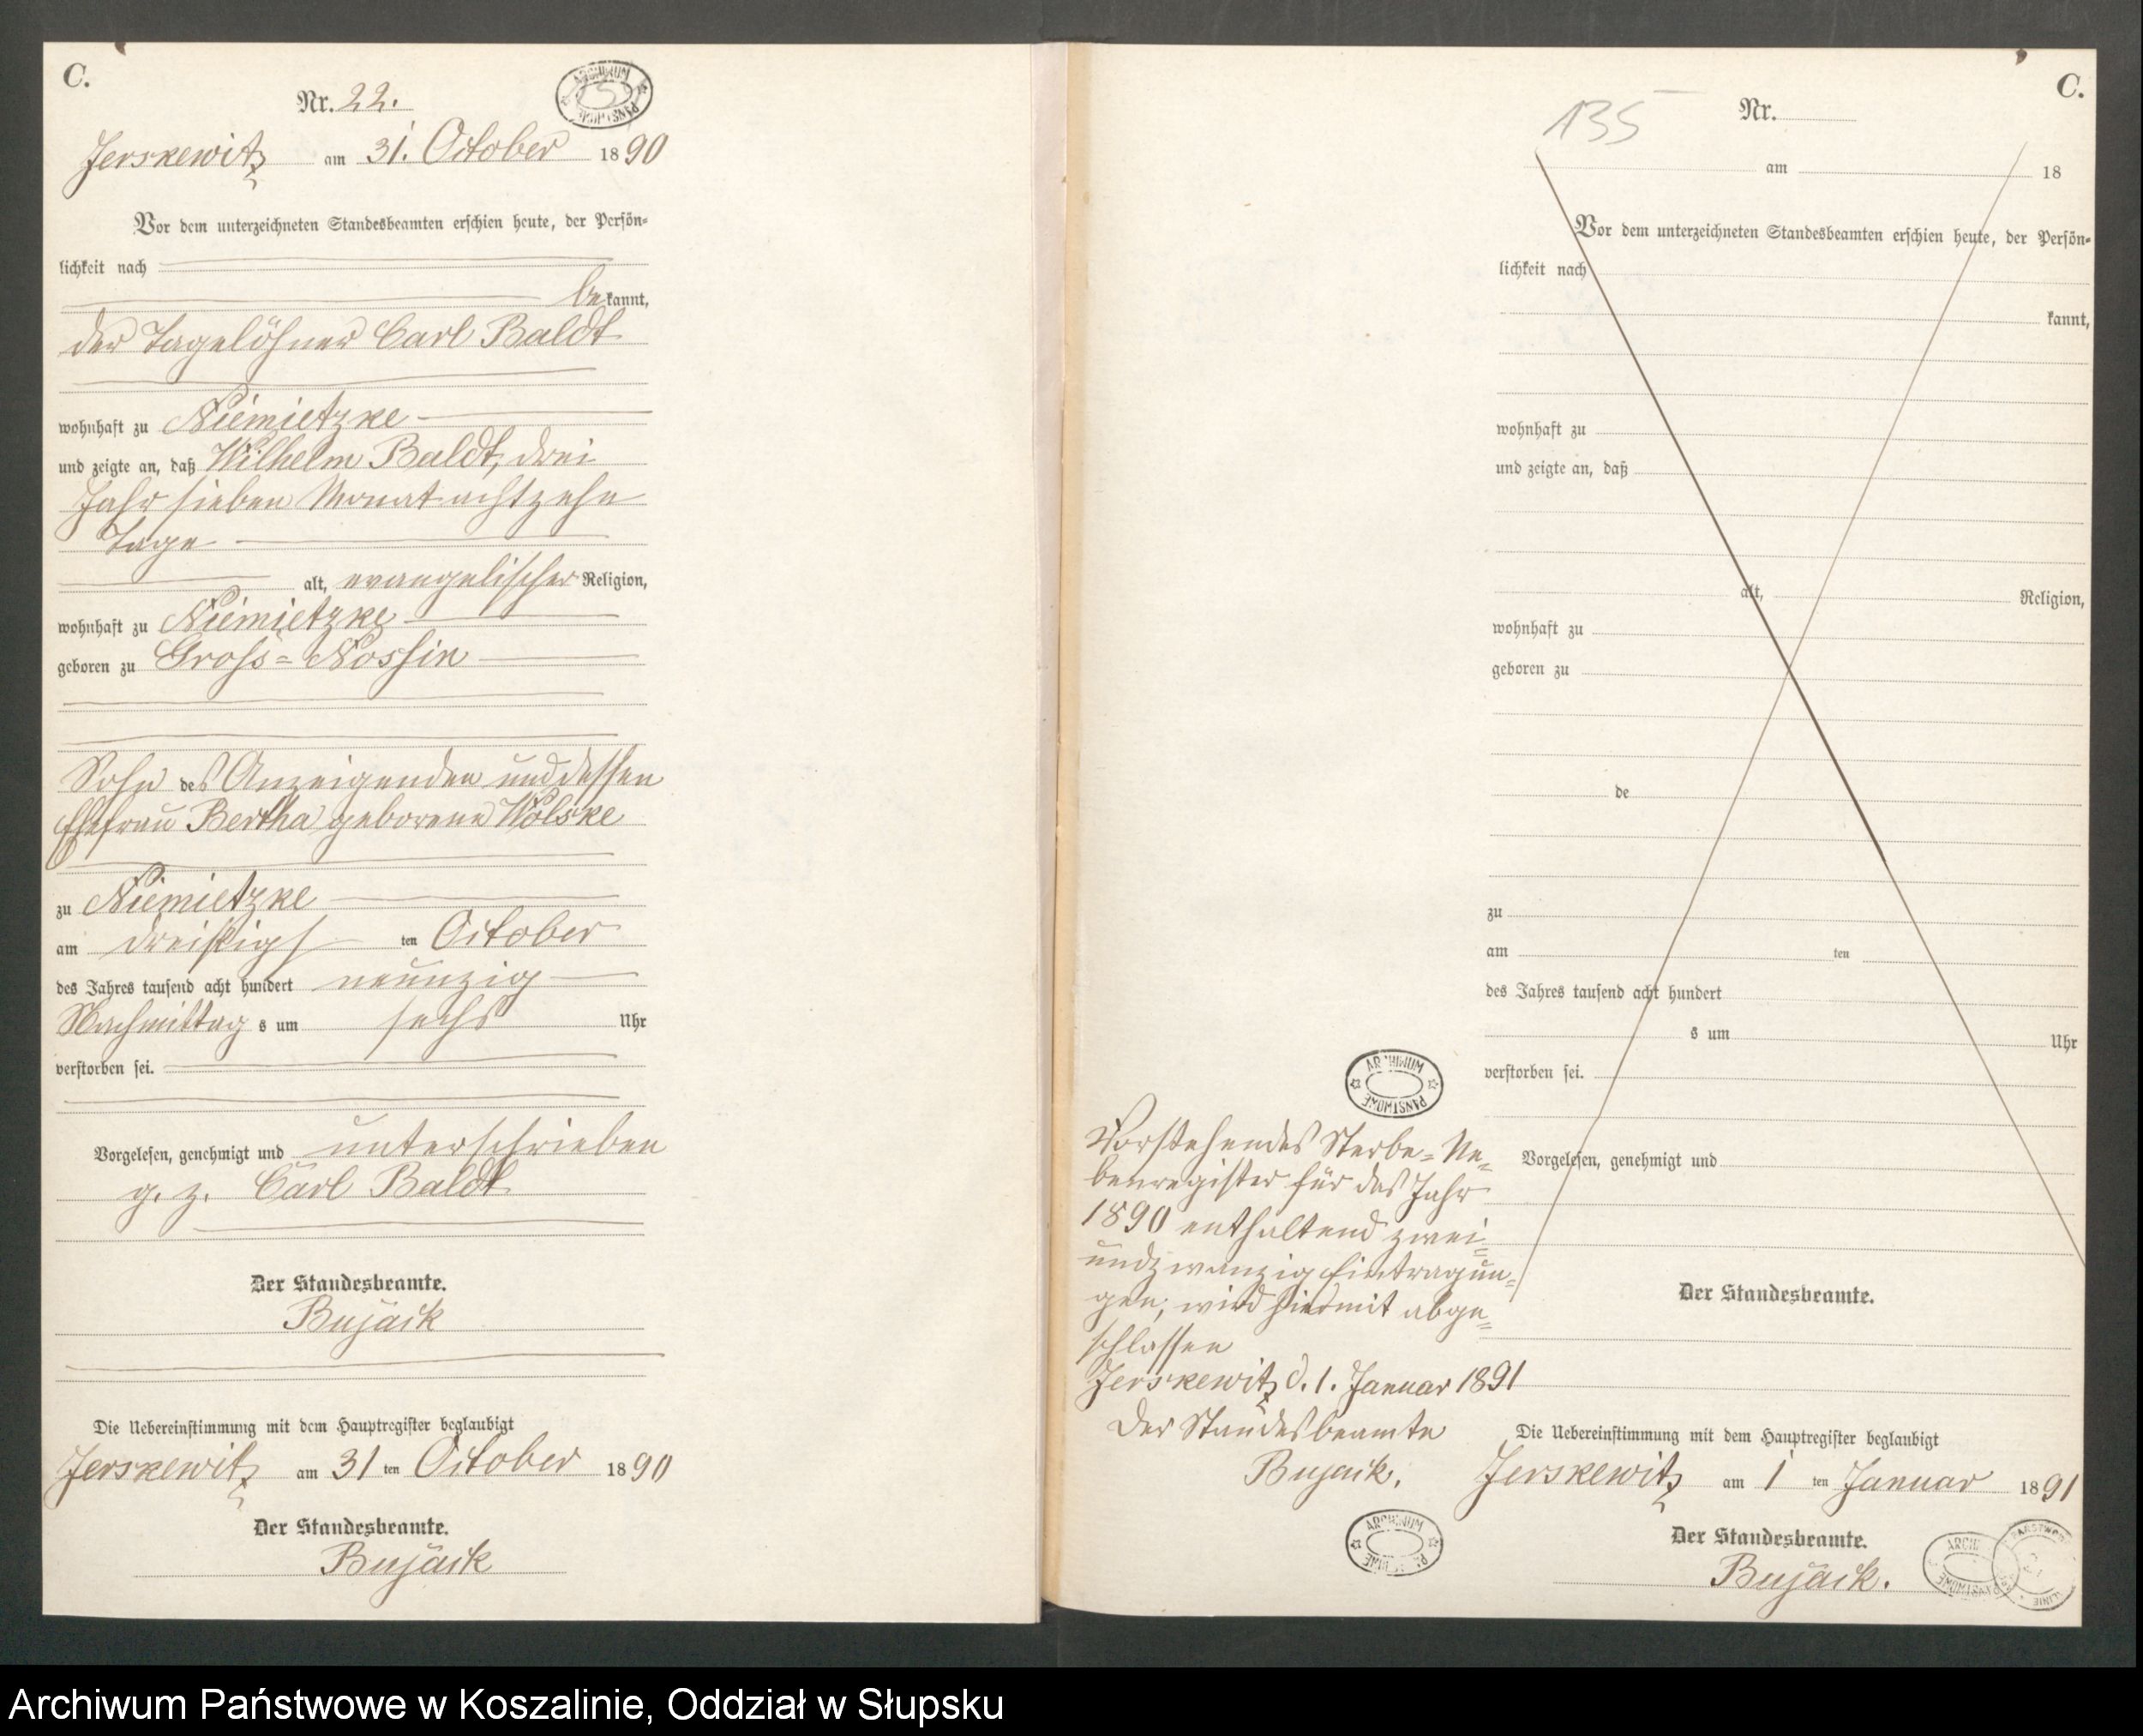 C.
Nr. 22.
ARCHIWUM PAŃSTWOWE
Jerskewitz am 31. October 1890
Vor dem unterzeichneten Standesbeamten erschien heute, der Persön-
lichkeit nach
be kannt,
der Tagelöhner Carl Baldt
wohnhaft zu Niemietzke
und zeigte an, daß Wilhelm Baldt, drei
Jahr sieben Monat achtzehn
Tage
alt, evangelischer Religion,
wohnhaft zu Niemietzke
geboren zu Gross-Nossin
Sohn des Anzeigenden und dessen
Ehefrau Bertha geborene Wölske
zu Niemietzke
am dreißigst ten October
des Jahres tausend acht hundert neunzig
Nachmittag s um sechs Uhr
verstorben sei.
Vorgelesen, genehmigt und unterschrieben
g. z. Carl Baldt
Der Standesbeamte.
Bujack
Die Uebereinstimmung mit dem Hauptregister beglaubigt
Jerskewitz am 31 ten October 1890
Der Standesbeamte.
Bujack
C.
135
Nr.
am 18
Vor dem unterzeichneten Standesbeamten erschien heute, der Persön-
lichkeit nach
kannt,
wohnhaft zu
und zeigte an, daß
alt, Religion,
wohnhaft zu
geboren zu
de
zu
am ten
des Jahres tausend acht hundert
s um Uhr
verstorben sei.
Vorgelesen, genehmigt und
Der Standesbeamte.
ARCHIWUM PAŃSTWOWE
Vorstehendes Sterbe-Ne-
benregister für das Jahr
1890 enthaltend zwei-
undzwanzig Eintragun-
gen, wird hiermit abge-
schlossen
Jerskewitz d. 1. Januar 1891
Der Standesbeamte
Bujack.
ARCHIWUM
Die Uebereinstimmung mit dem Hauptregister beglaubigt
Jerskewitz am 1 ten Januar 1891
Der Standesbeamte.
Bujack.
Archiwum Państwowe w Koszalinie, Oddział w Słupsku